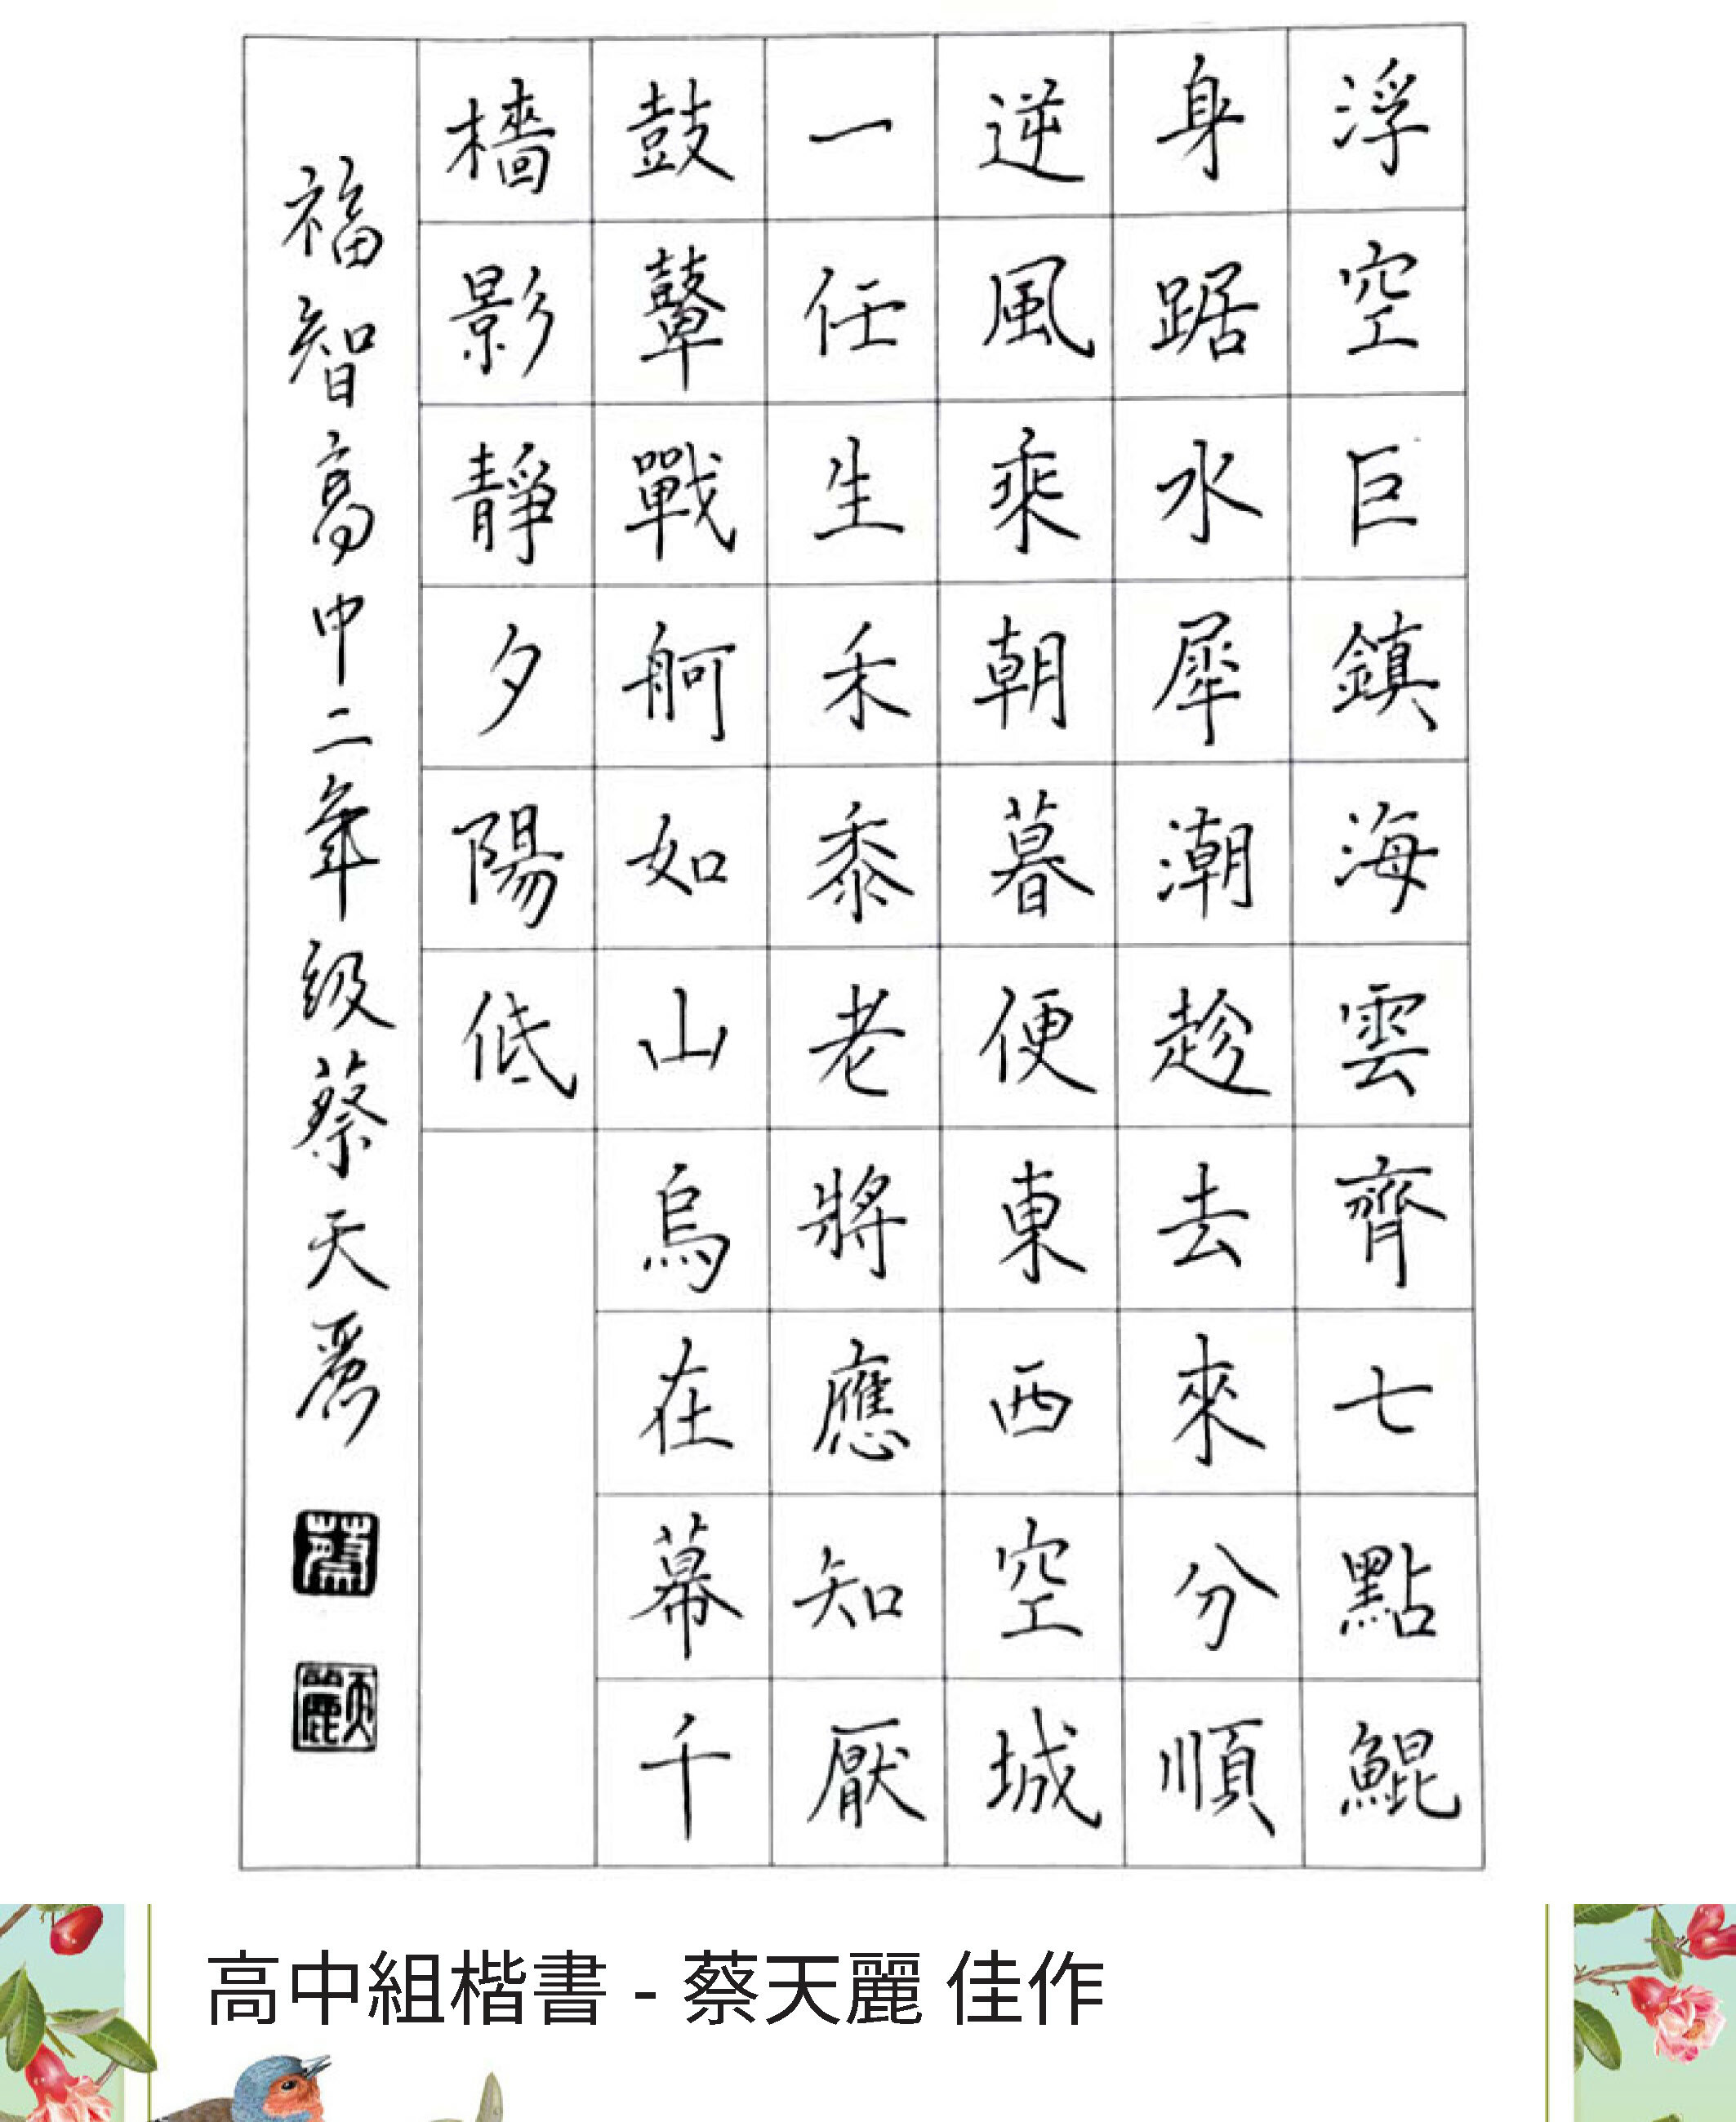 浮空巨鎮海雲齊七點鯤
身踞水犀潮趁去來分順
逆風乘朝暮便東西空城
一任生禾黍老將應知厭
鼓鼙戰舸如山烏在幕千
檣影靜夕陽低
福智高中二年級蔡天麗
蔡
天麗
高中組楷書 - 蔡天麗 佳作